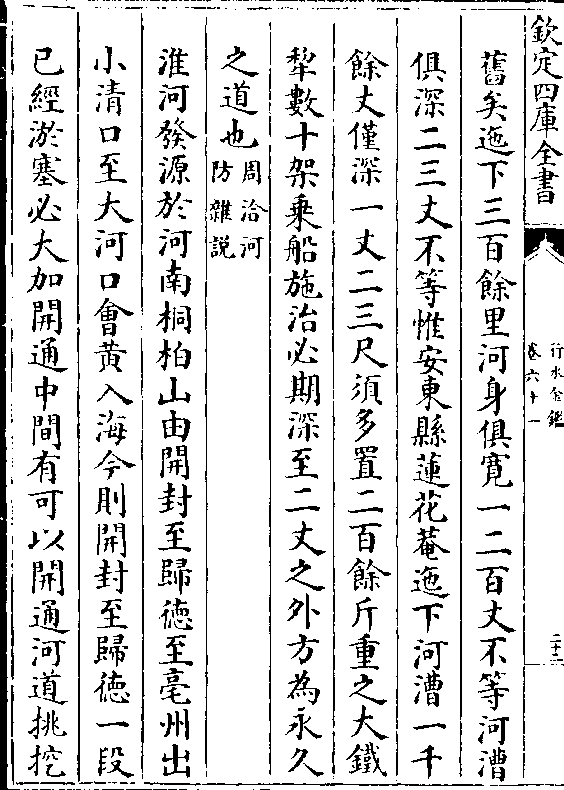 欽定四庫全書
行水金鑑
卷六十一
二十二
舊矣迤下三百餘里河身俱寬一二百丈不等河漕
俱深二三丈不等惟安東縣蓮花菴迤下河漕一千
餘丈僅深一丈二三尺須多置二百餘斤重之大鐵
犂數十架乗船施治必期深至二丈之外方為永久
之道也周洽河
防雜説
淮河發源於河南桐柏山由開封至歸徳至亳州出
小清口至大河口會黄入海今則開封至歸徳一段
已經淤塞必大加開通中間有可以開通河道挑挖